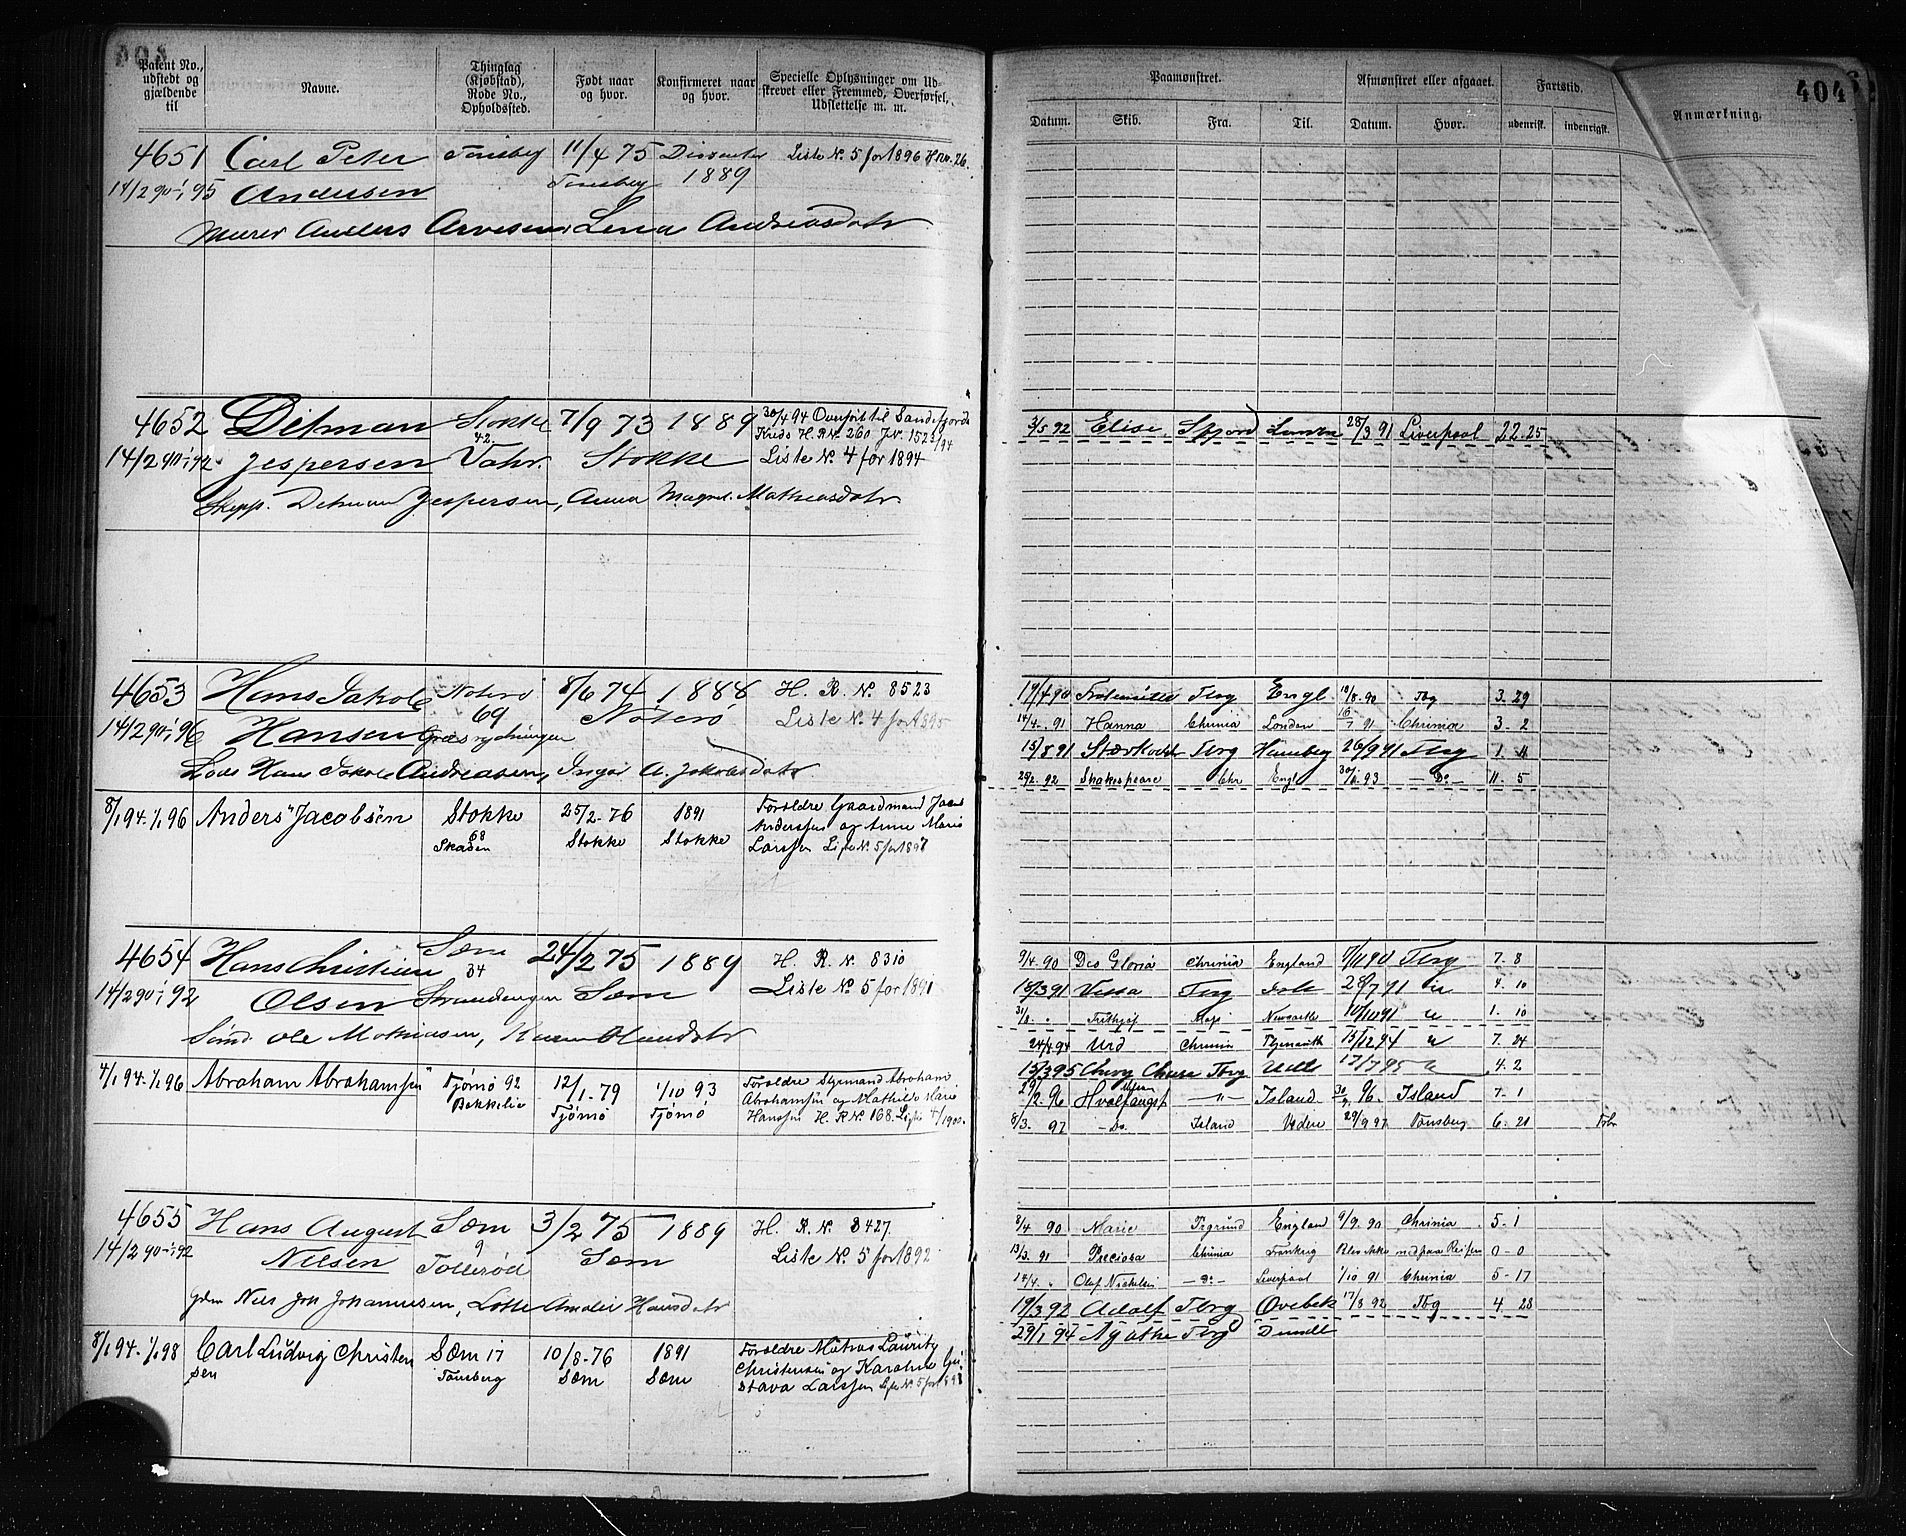 Patent No., udstedt og gjældende til
Navne.
Thinglag (Kjøbstad), Rode No., Opholdssted.
Født naar og hvor.
Konfirmeret naar og hvor.
Specielle Oplysninger om Udskrevet eller Fremmed, Overførsel, Udslettelse m. m.
Paamønstret.
Afmønstret eller afgaaet.
Fartstid.
Anmærkning.
404
Datum. Skib. Fra. Til. Datum. Hvor. udenrigsk. indenrigsk.
4651 Carl Peter Tønsberg 11/4 75 Dissenter Liste No. 5 for 1896 H No. 26
14/2 90 - 1/1 95 Andersen Tønsberg 1889
Murer Anders Arvesen, Lena Andreasdatr
4652 Ditman Stokke 7/9 73 1889 30/4 94 Overført til Sandefjords
42 Kreds H. R. N. 260 Jr. 1523/94
14/2 90 - 1/1 92 Jespersen Stokke Liste No. 4 for 1894
Skipp. Detman Jespersen, Anna Magret. Mathiasdatr
3/5 92 Elise Sfjord London 28/3 91 Liverpool 22. 25
4653 Hans Jakob Nøterø 8/6 74 1888 H. R. N. 8523
69
14/2 90 - 1/1 96 Hansen Græsrydningen Nøterø Liste No. 4 for 1895
Hans Jakob Andreasen, Inger A. Jakobsdatr
19/4 90 Tbrg Engl 18/8 90 Tbg 3. 29
14/4 - 91 Hanna Chrinia London 16/7 91 Chrinia 3 - 2
15/8 91 Stærkodder Tbrg Hamborg 26/9 91 Tbrg 1. 11
29/2. 92 Shakespeare Chr Engl 30/11 93 - Do - 11. 5
8/1 94. 1/1 96 Anders Jacobsen Stokke 25/2 - 76 1891 Forældre Gaardmand Jacob
68 Anderssen og Anne Marie
Skaden Stokke Stokke Larssen Liste No. 5 for 1897
4654 Hans Christian Sem 24/2 75 1889 H. R. N. 8310
34
14/2 90 - 1/1 92 Olsen Strandengen Sem Liste No. 5 for 1891
Ole Mathiasen, Karen Olausdatr
9/4. 90 Deo Gloria Chrinia England 7/11 90 Tbrg 7. 8
18/3 91 Vessa Tbrg 28/7 91 4. 10
31/8 " Frithjof Newcastle 10/11 91 1. 10
24/4 94 Urd Chrinia 15/12 94 7. 24
15/3 95 Tbrg 17/7 95 4. 2
29/2. 96 Hvalfangst - " - Island 30/9 96. Island 7. 1
8/3. 97 - Do. Island 29/9 97 Tønsberg 6. 21
4/1 94. 1/1 96 Abraham Abrahamsen Tjømø 92 12/1 - 79 1/10 93 Forældre Styrmand Abraham
Bekkelie Abrahamsen og Mathilde Marie
Tjømø Tjømø Hanssen H. R. N. 168. Liste 4/1900.
4655 Hans August Sem 3/2 75 1889 H. R. N. 8427
9
14/2 90 - 1/1 92 Nilsen Tollerød Sem Liste No. 5 for 1892
Nils Joh Johannesen, Lotte Amalie Hansdatr
8/4 90 Marie England 9/9. 90 Chrinia 5. 1
13/3. 91 Preciosa Chrinia Frankrig Blev ikke med paa Reisen 0 - 0
14/4. " Olaf Nickelsen - Do - Liverpool 1/10 91 Chrinia 5 - 17
19/3 92 Adolf Tbrg 17/8 92 Tbg 4. 28
29/1 94 Agathe Tbrg
8/1 94. 1/1 98 Carl Ludvig Christen Sem 17 10/8 - 76 1891 Forældre Matros Lauritz
sen Tønsberg Sem Sem Christensen og Karoline Gu-
stava Larssen Liste No. 5 for 1898